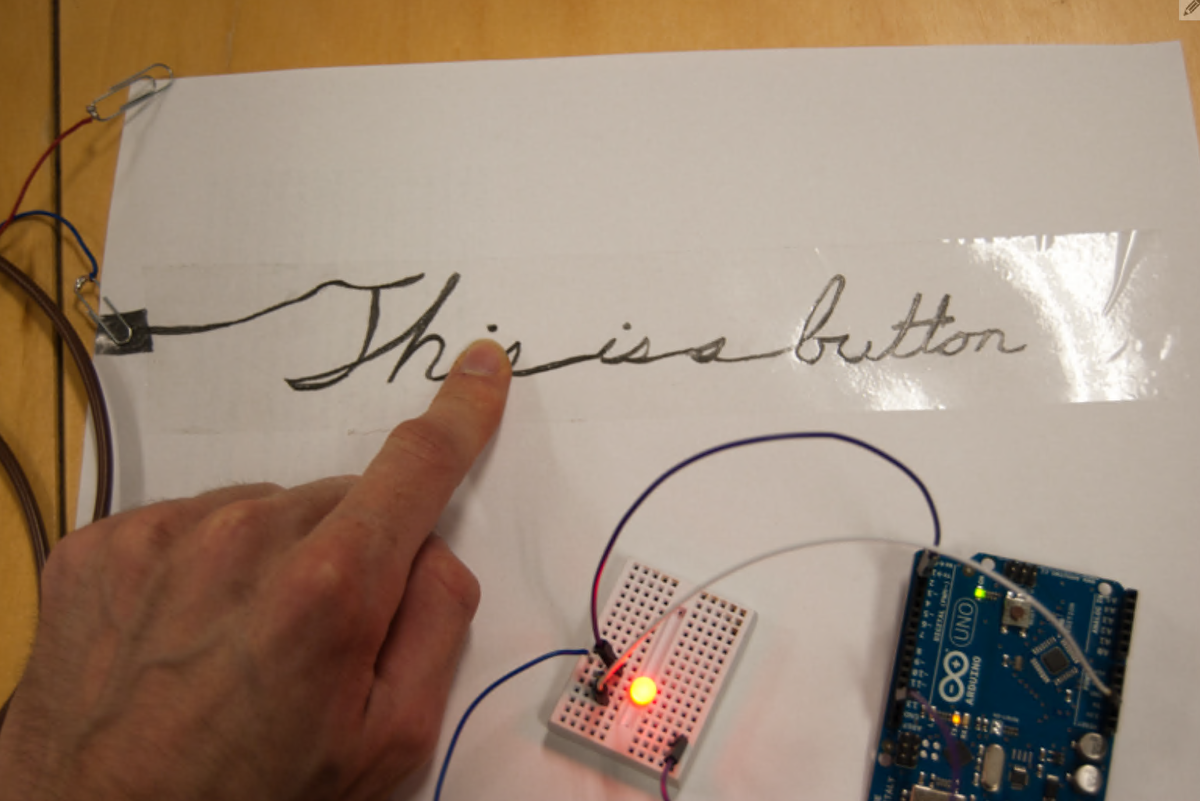 This is a button
UNO
ARDUINO